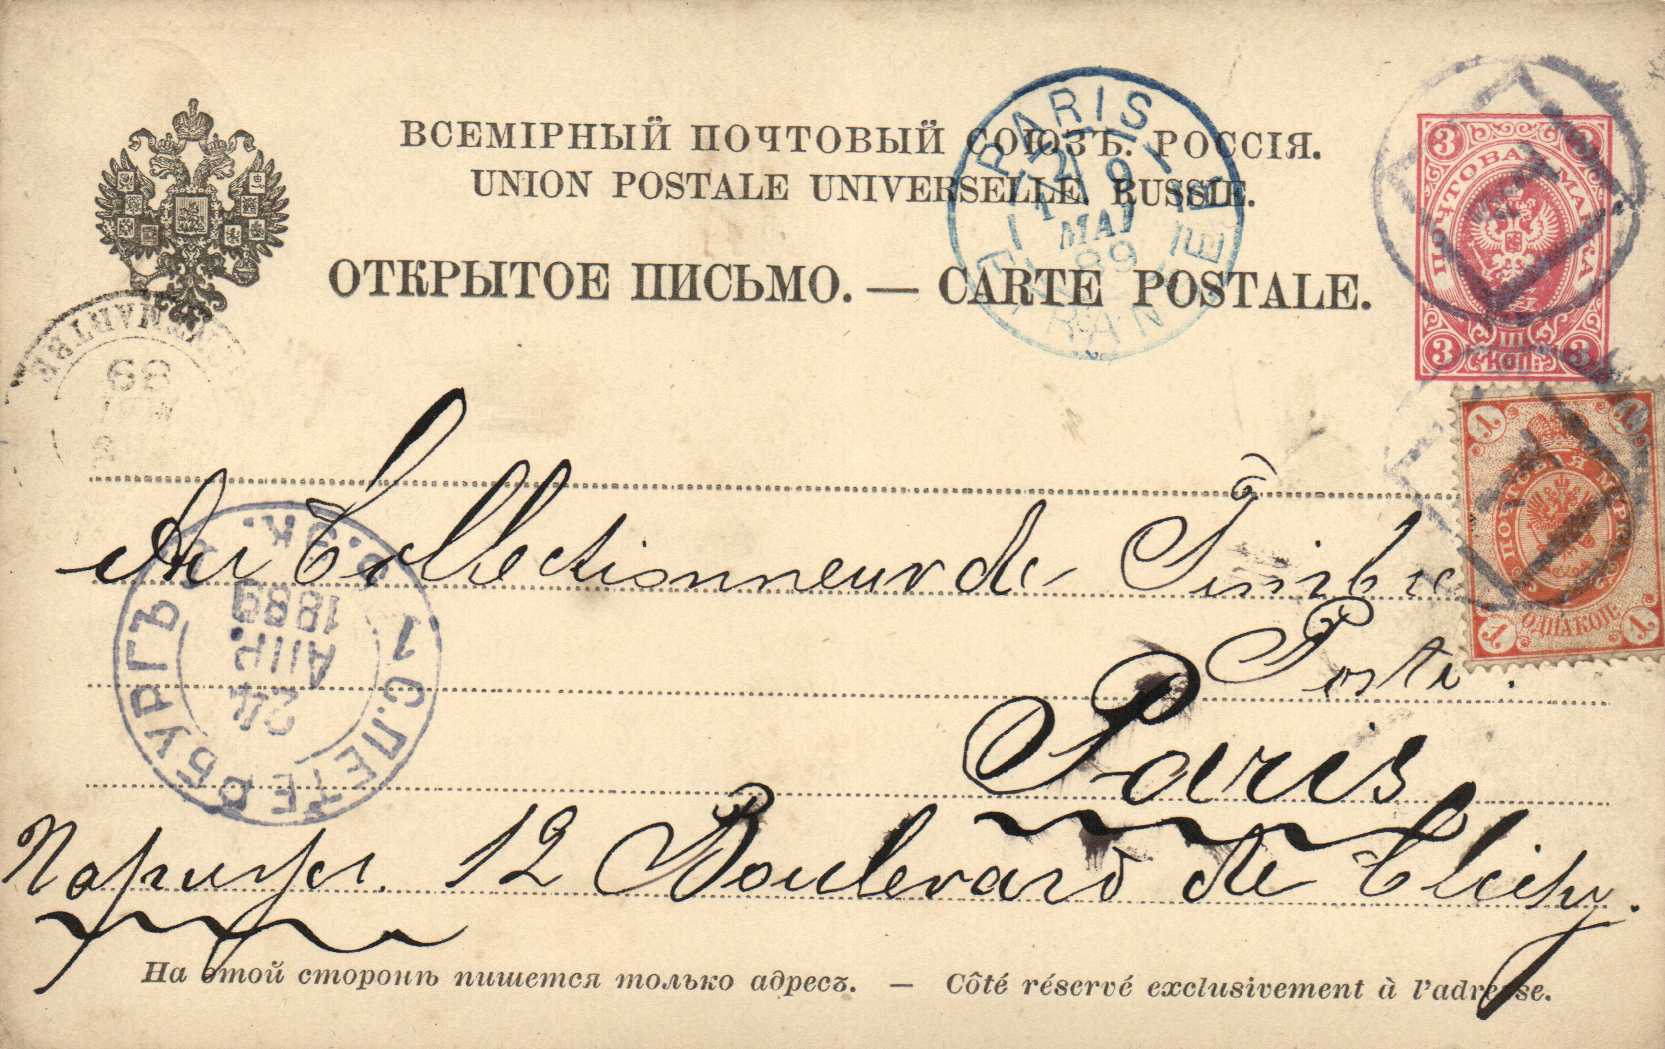 ВСЕМІРНЫЙ ПОЧТОВЫЙ СОЮЗЪ. РОССІЯ.
UNION POSTALE UNIVERSELLE. RUSSIE.
ОТКРЫТОЕ ПИСЬМО. — CARTE POSTALE.
PARIS
MAI
89
ETRANGER
3 3
ПОЧТОВАЯ МАРКА
III
3 КОП. 3
MONTMARTRE
89
1 1
ПОЧТОВАЯ МАРКА
ОДНА КОП.
1 1
Au Collectionneur de Timbre
Poste.
Paris
Парижъ. 12 Boulevard de Clichy.
С.ПЕТЕРБУРГЪ
24
АПР.
1889
1
На этой сторонѣ пишется только адресъ. — Côté réservé exclusivement à l'adresse.